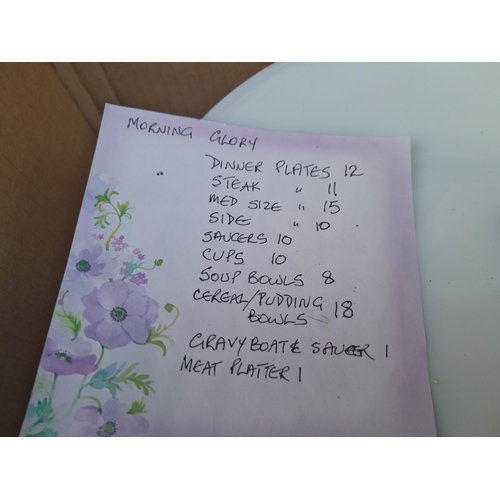 MORNING GLORY
DINNER PLATES 12
STEAK " 11
MED SIZE " 15
SIDE " 10
SAUCERS 10
CUPS 10
SOUP BOWLS 8
CEREAL/PUDDING 18
BOWLS
GRAVY BOAT & SAUCER 1
MEAT PLATTER 1